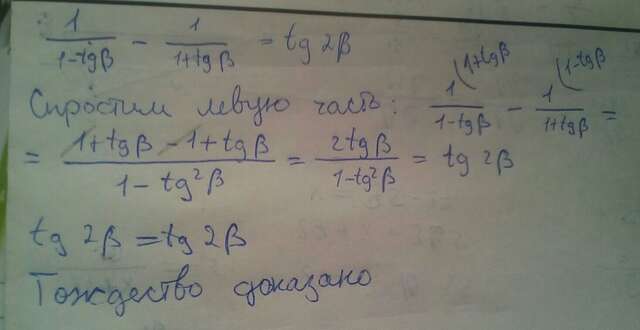 1/(1-tgβ) - 1/(1+tgβ) = tg 2β
Спростим левую часть: 1/(1-tgβ) (1+tgβ - 1/(1+tgβ) (1-tgβ =
= (1+tgβ - 1+tgβ)/(1-tg²β) = 2tgβ/(1-tg²β) = tg 2β
tg 2β = tg 2β
Тождество доказано